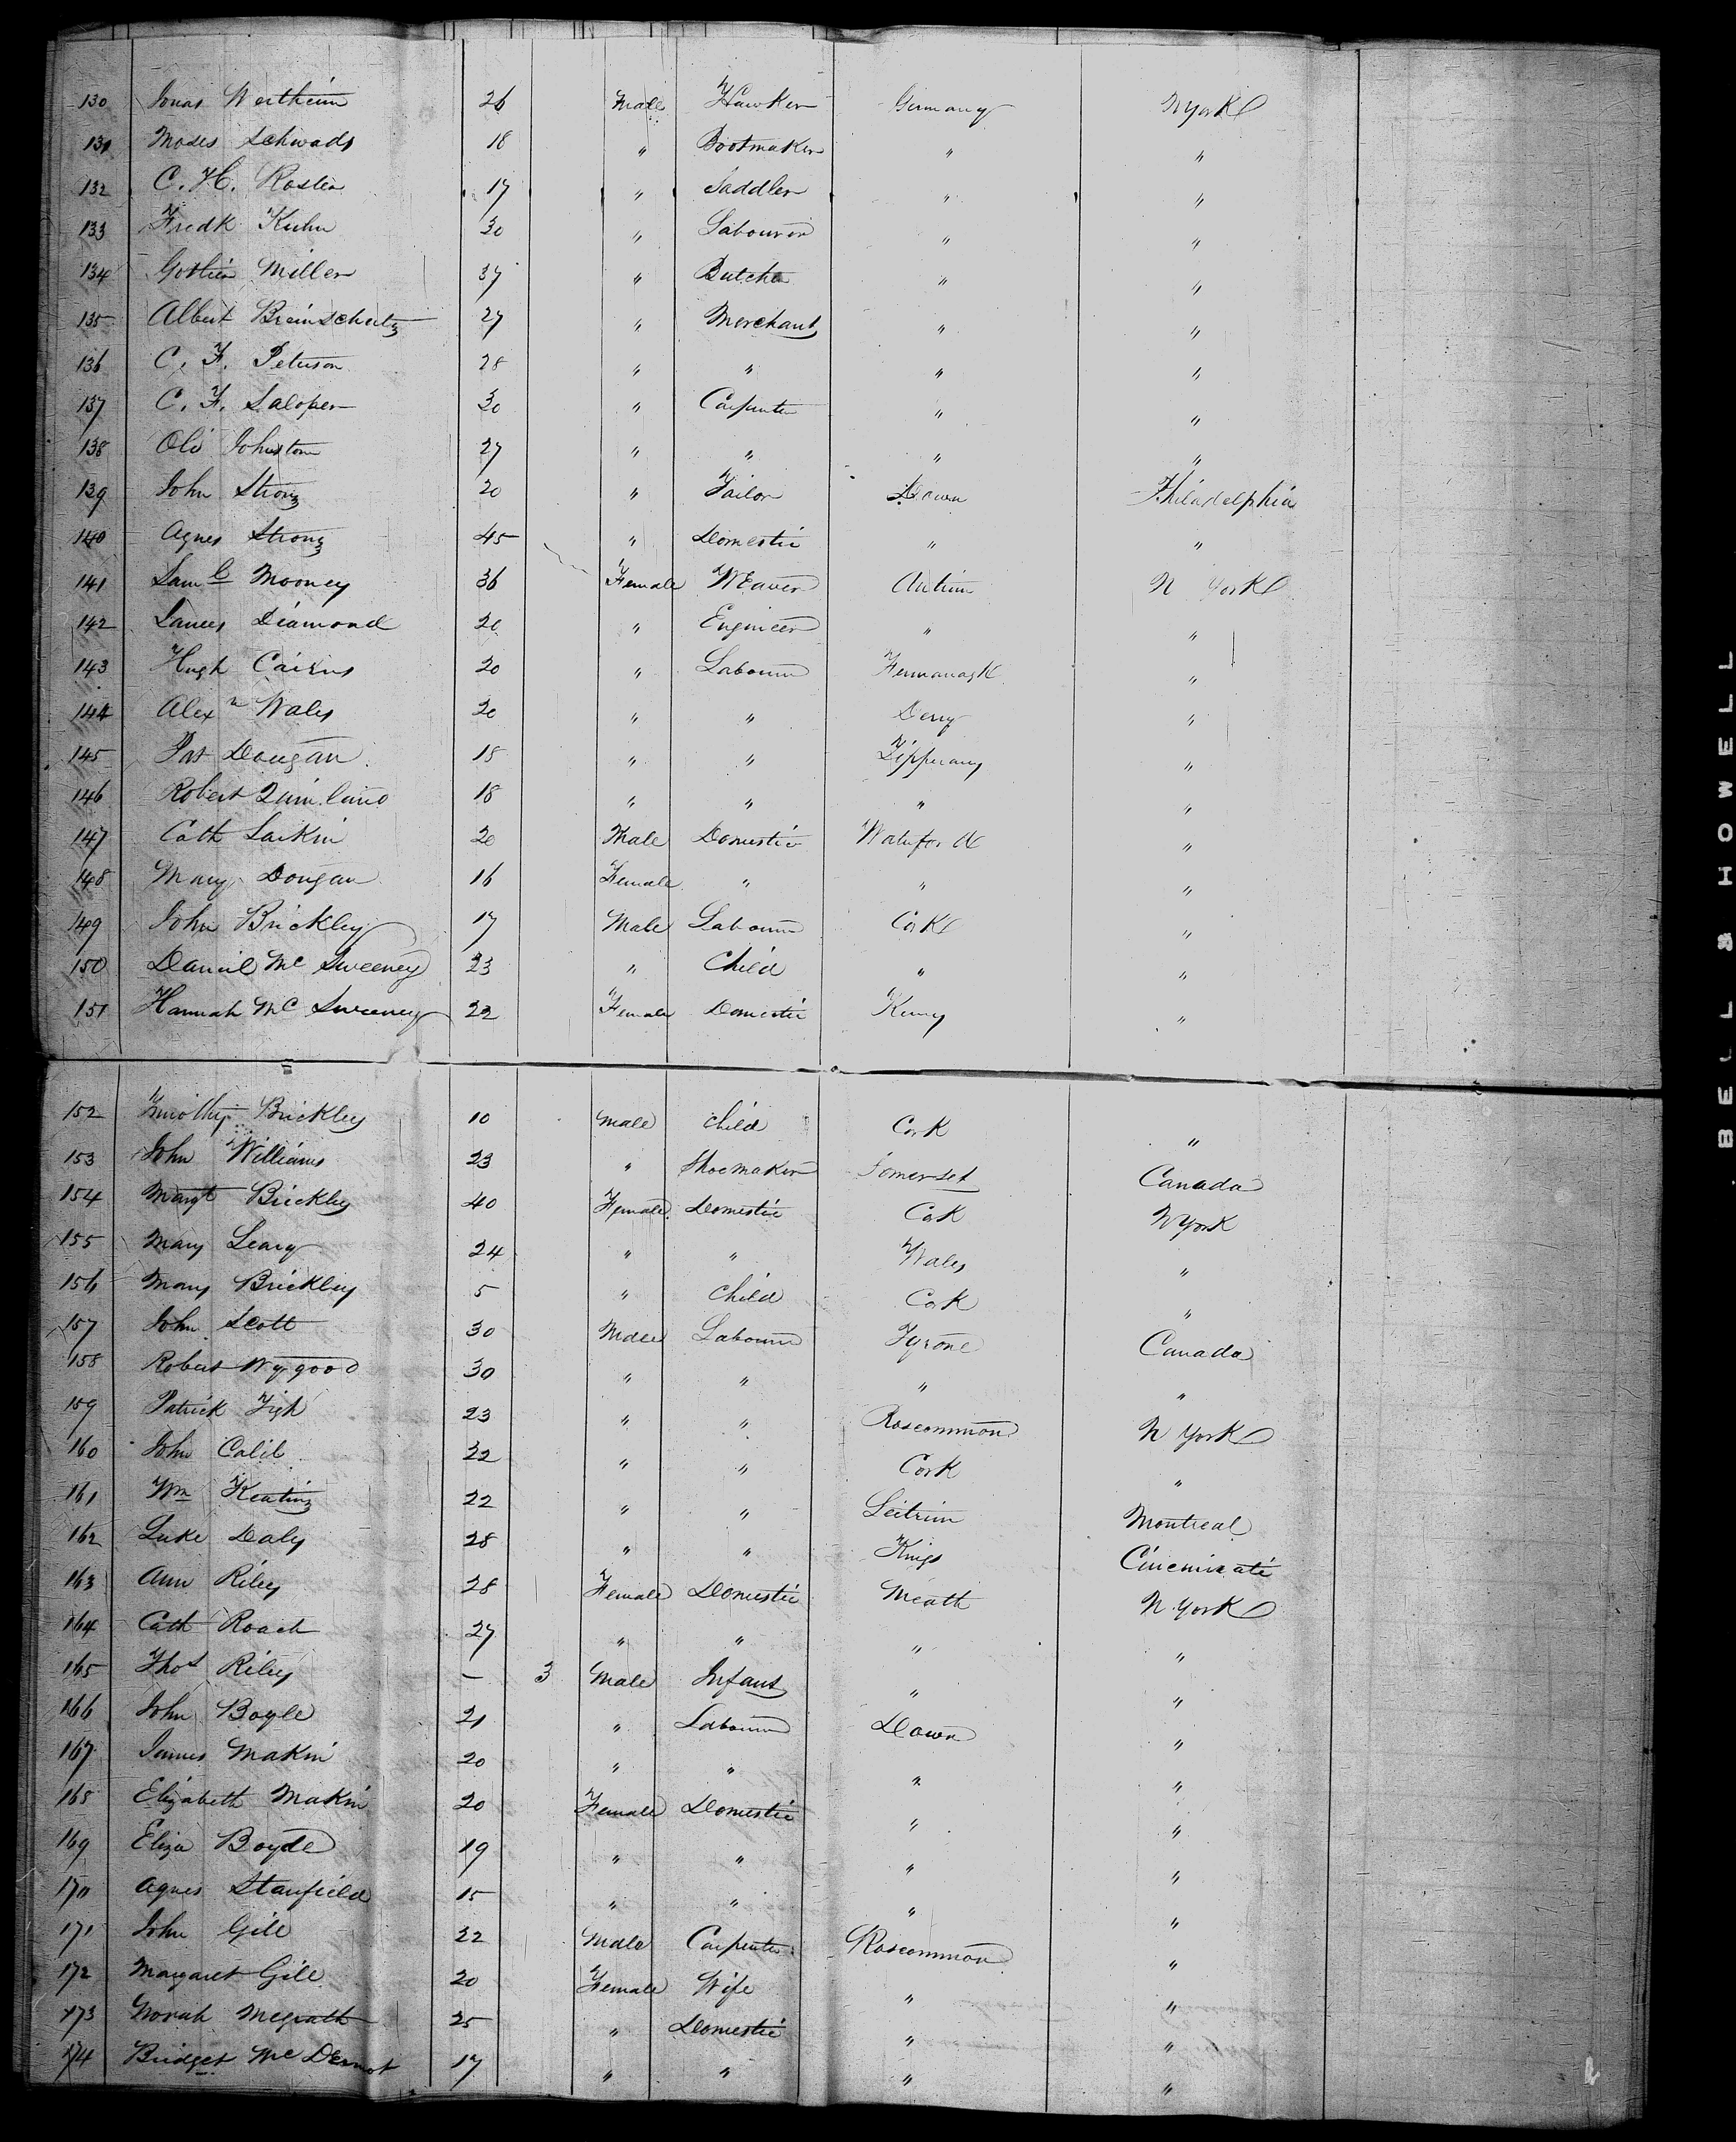 130 Jonas Wertheim 26 Male Hawker Germany NYork
131 Moses Schwads 18 " Bootmaker " "
132 C. H. Roster 17 " Saddler " "
133 Fredk Kuhn 30 " Labourer " "
134 Miller 37 " Butcher " "
135 Albert 27 " Merchant " "
136 C. F. Peterson 28 " " " "
137 C. F. Saloper 30 " Carpenter " "
138 Ole Johnston 27 " " " "
139 John Strong 20 " Tailor Down Philadelphia
140 Agnes Strong 45 " Domestic " "
141 Saml Mooney 36 Female Weaver Antrim N York
142 James Diamond 20 " Engineer " "
143 Hugh Cairns 20 " Labourer Fermanagh "
144 Alexr Wales 20 " " Derry "
145 Pat Dougan 18 " " Tipperary "
146 Robert 18 " " " "
147 Cath Larkin 20 Male Domestic Waterford "
148 Mary Dougan 16 Female " " "
149 John Brickley 17 Male Labourer Cork "
150 Daniel Mc Sweeney 23 " Child " "
151 Hannah Mc Sweeney 22 Female Domestic Kerry "
152 Timothy Brickley 10 Male Child Cork "
153 John Williams 23 " Shoemaker Somerset Canada
154 Margt Brickley 40 Female Domestic Cork NYork
155 Mary Leary 24 " " Wales "
156 Mary Brickley 5 " Child Cork "
157 John Scott 30 Male Labourer Tyrone Canada
158 Robert Wygood 30 " " " "
159 Patrick Tigh 23 " " Roscommon N York
160 John Calil 22 " " Cork "
161 Wm Keating 22 " " Leitrim Montreal
162 Luke Daly 28 " " Kings Cincinnati
163 Ann Riley 28 Female Domestic Meath N. York
164 Cath Roach 27 " " " "
165 Thos Riley — 3 Male Infant " "
166 John Boyle 21 " Labourer Down "
167 James Makin 20 " " " "
168 Elizabeth Makin 20 Female Domestic " "
169 Eliza Boyde 19 " " " "
170 Agnes Stanfield 15 " " " "
171 John Gill 22 Male Carpenter Roscommon "
172 Margaret Gill 20 Female Wife " "
173 Norah Megrath 25 " Domestic " "
174 Bridget Mc Dermot 17 " " " "
BELL & HOWELL